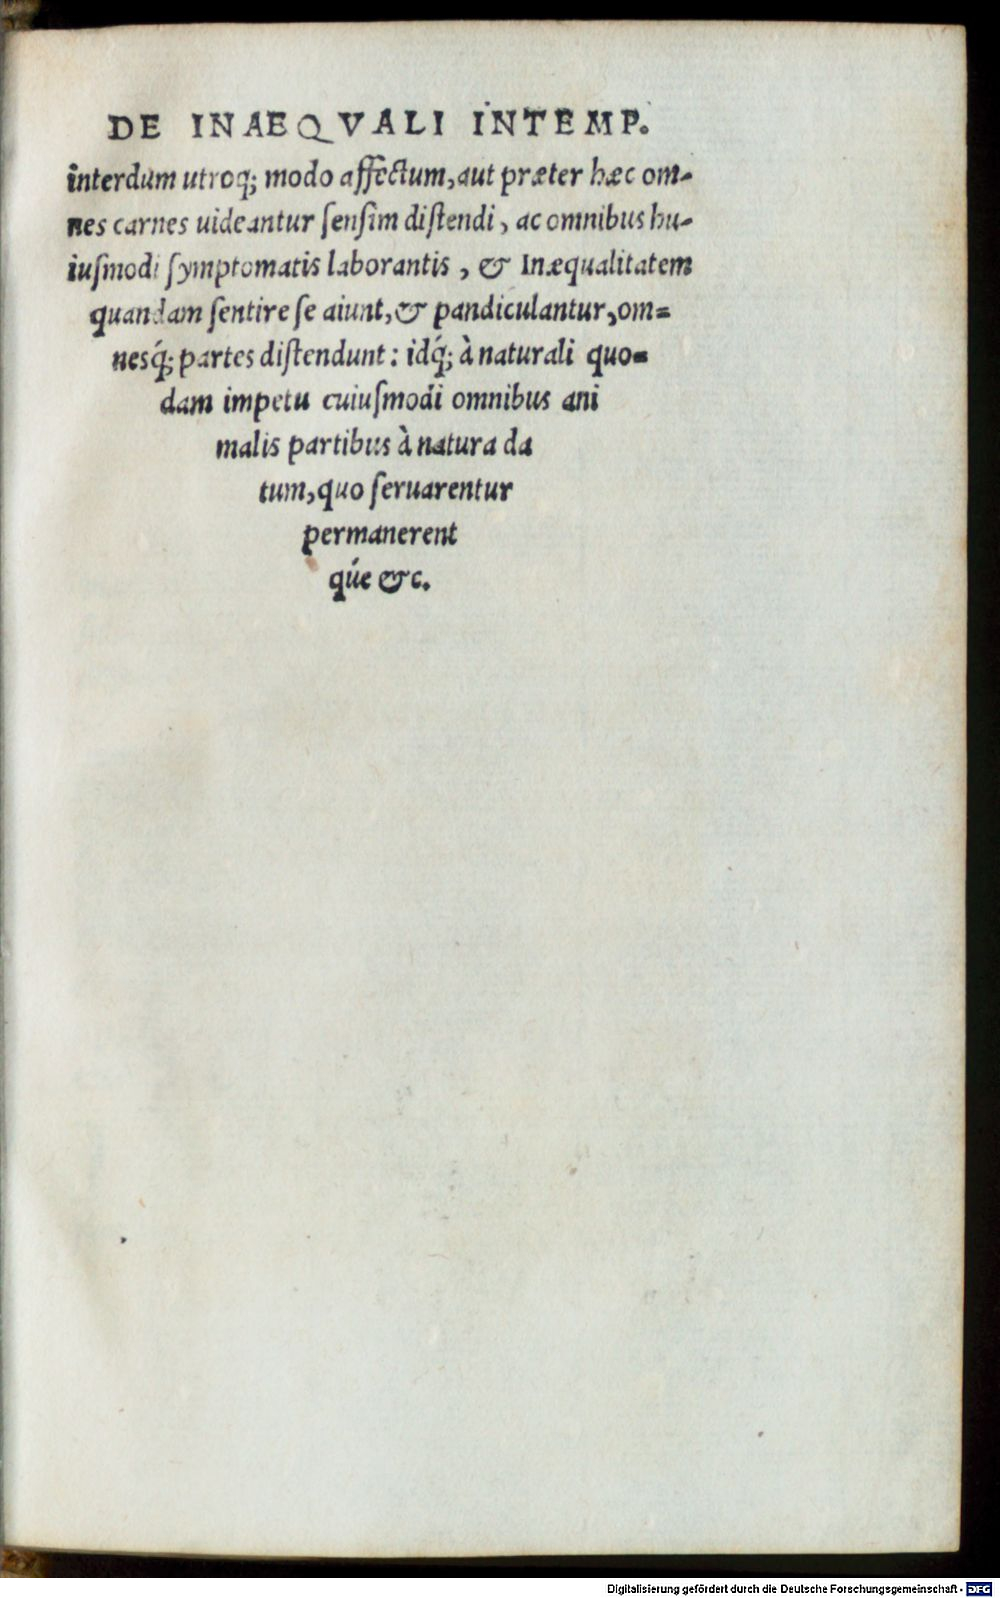 DE INAEQVALI INTEMP.
interdum utroq; modo affectum, aut præter hæc om-
nes carnes uideantur ſenſim diſtendi, ac omnibus hu-
iuſmodi ſymptomatis laborantis, & Inæqualitatem
quandam ſentire ſe aiunt, & pandiculantur, om=
neśq; partes diſtendunt: idq́; à naturali quo=
dam impetu cuiuſmodi omnibus ani
malis partibus à natura da
tum, quo ſeruarentur
permanerent
qúe &c.
Digitalisierung gefördert durch die Deutsche Forschungsgemeinschaft - DFG